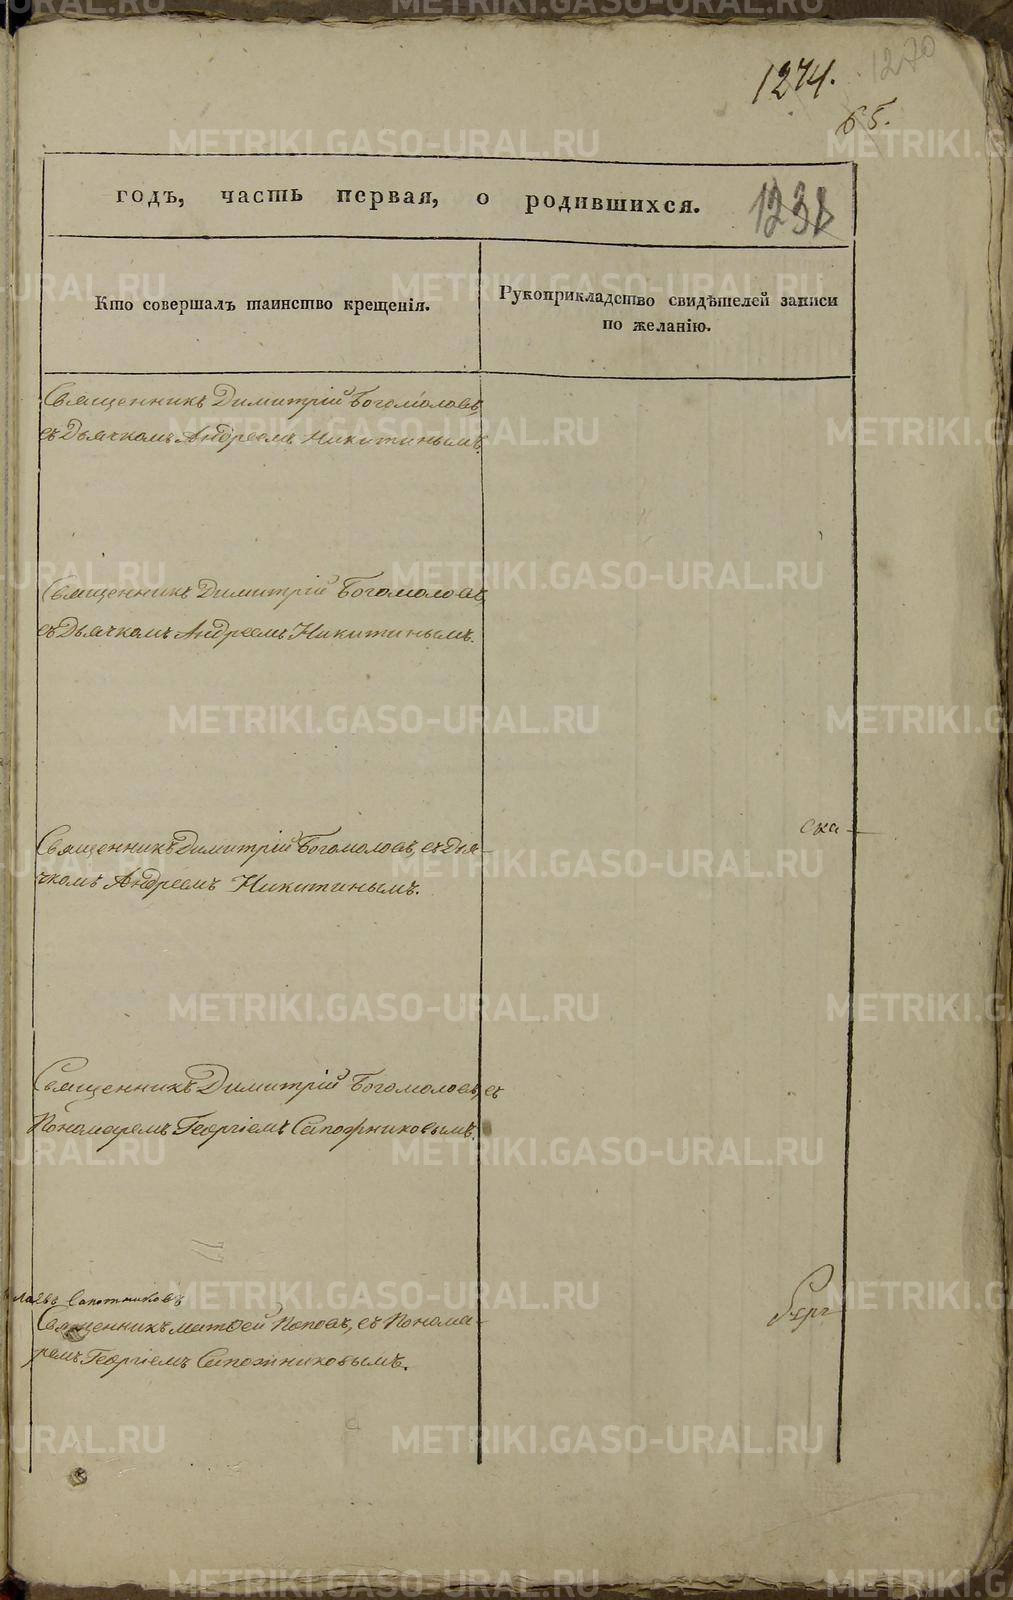 1274.
1270
65.
годъ, часть первая, о родившихся.
1238
Кто совершалъ таинство крещенія.
Рукоприкладство свидѣтелей записи
по желанію.
Священникъ Димитрій Богомоловъ,
съ Дьячкомъ Андреемъ Никитинымъ.
Священникъ Димитрій Богомоловъ,
съ Дьячкомъ Андреемъ Никитинымъ.
ска-
Священникъ Димитрій Богомоловъ, съ Дья-
чкомъ Андреемъ Никитинымъ.
Священникъ Димитрій Богомоловъ, съ
Пономаремъ Георгіемъ Сапожниковымъ.
Сапожниковъ
Священникъ Матѳей Поповъ, съ Понома-
ремъ Георгіемъ Сапожниковымъ.
METRIKI.GASO-URAL.RU